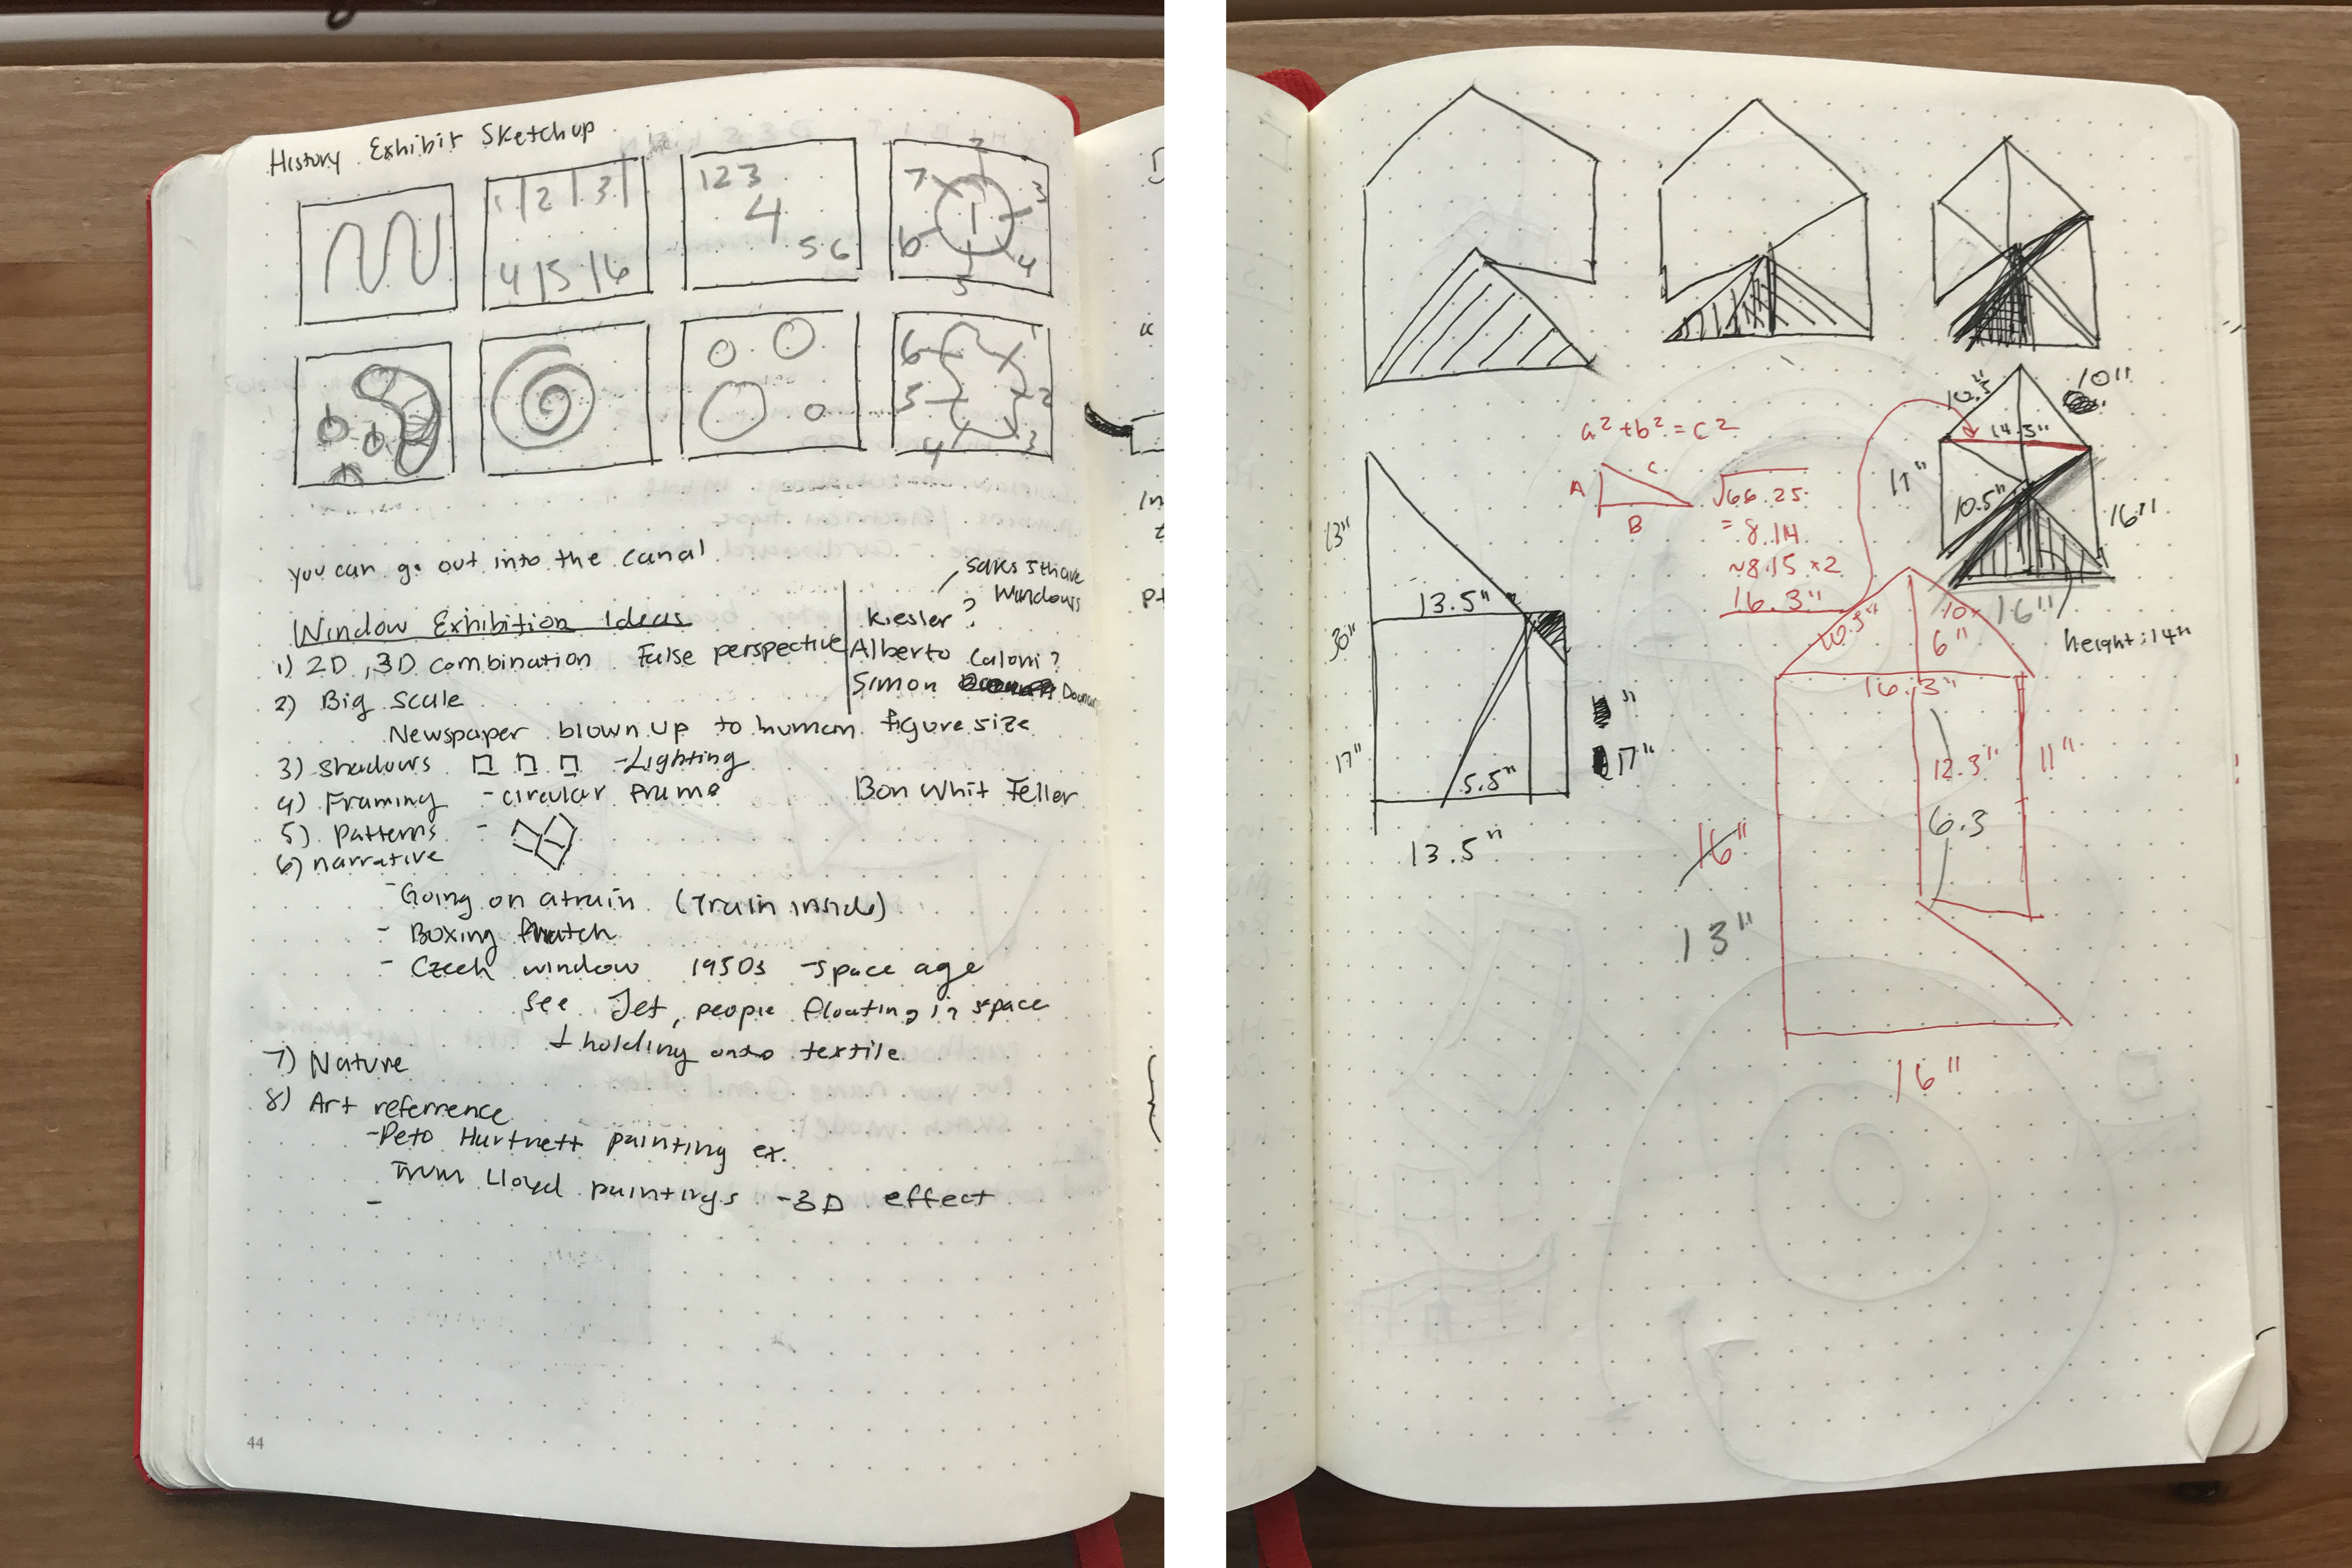 History Exhibit Sketchup
1 2 3
4 5 6
1 2 3
4
5 6
2
7 3
1
6 4
5
6 1
5 2
4 3
you can go out into the canal
Saks 5th ave
Windows
Window Exhibition Ideas
Kiesler ?
1) 2D, 3D combination False perspective
Alberto Caloni ?
Simon
2) Big Scale
Newspaper blown up to human figure size
3) Shadows - Lighting
4) Framing - circular frame
Bon Whit Teller
5) Patterns -
6) narrative
- Going on a train (Train inside)
- Boxing match
- Czech window 1950s - space age
see Jet, people floating in space
+ holding onto textile
7) Nature
8) Art refernence
- Peto Hartnett painting ex.
Lloyd paintings - 3D effect
-
44
10.5" 10"
14.3"
11"
10.5"
16"
16"
height: 14"
a² + b² = c²
A C
B
√66.25
= 8.14
~8.15 x 2
16.3"
13"
13.5"
30"
17"
5.5"
17"
13.5"
10.5" 10
6"
16.3"
12.3" 11"
6.3
16"
13"
16"